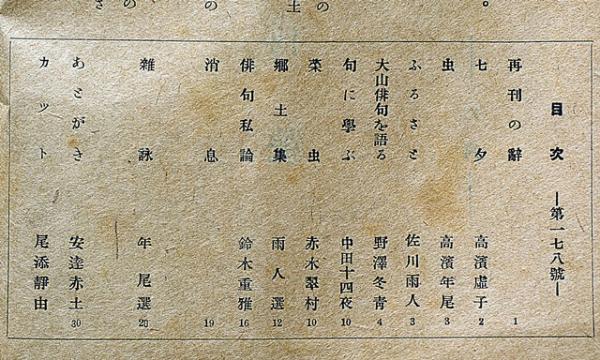 さの土のの。
目次 ―第一七八號―
再刊の辭 1
七夕 高濱虛子 2
虫 高濱年尾 3
ふるさと 佐川雨人 3
大山俳句を語る 野澤冬靑 4
句に學ぶ 中田十四夜 10
菜虫 赤木翠村 10
鄉土集 雨人選 12
俳句私論 鈴木重雅 16
消息 19
雜詠 年尾選 20
あとがき 安達赤土 30
カット 尾添靜由